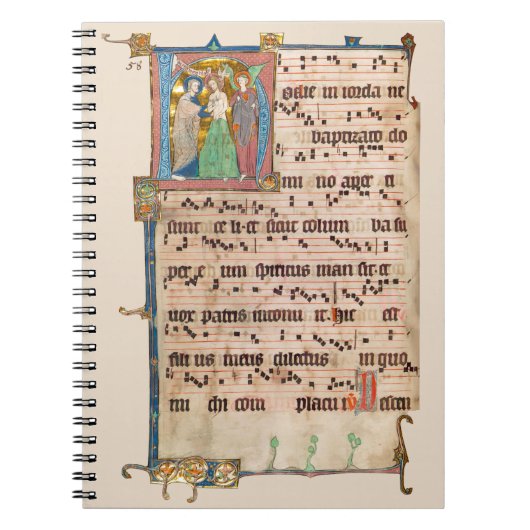 58
Hodie in iorda ne
baptizato do
mi no aper ti
sunt ce li et sicut colum ba su
per e um spiritus man sit et
uox patris intonu it hic est
fili us meus dilectus in quo
mi chi com placu it V Descen